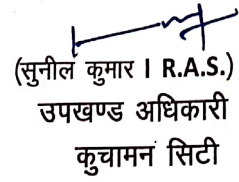 (सुनील कुमार I R.A.S.)
उपखण्ड अधिकारी
कुचामन सिटी